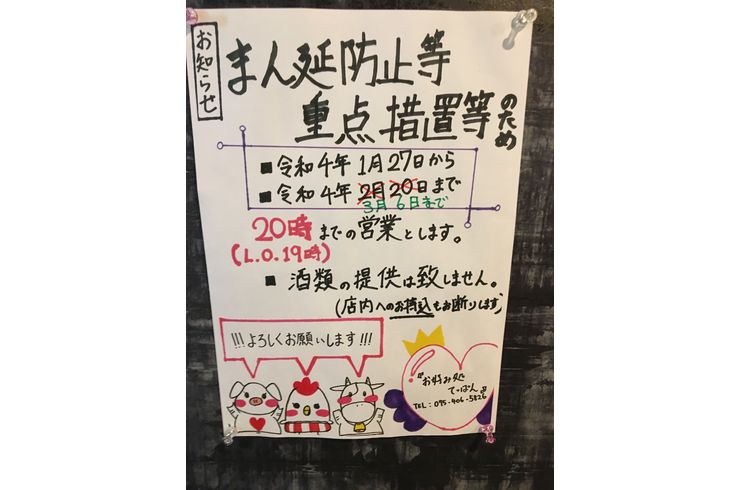 お知らせ
まん延防止等
重点措置等のため
■令和4年1月27日から
■令和4年2月20日まで
3月6日まで
20時までの営業とします。
(L.O.19時)
■酒類の提供は致しません。
(店内へのお持込もお断りします)
!!!よろしくお願いします!!!
『お好み処
てっぱん』
TEL:095-906-5826